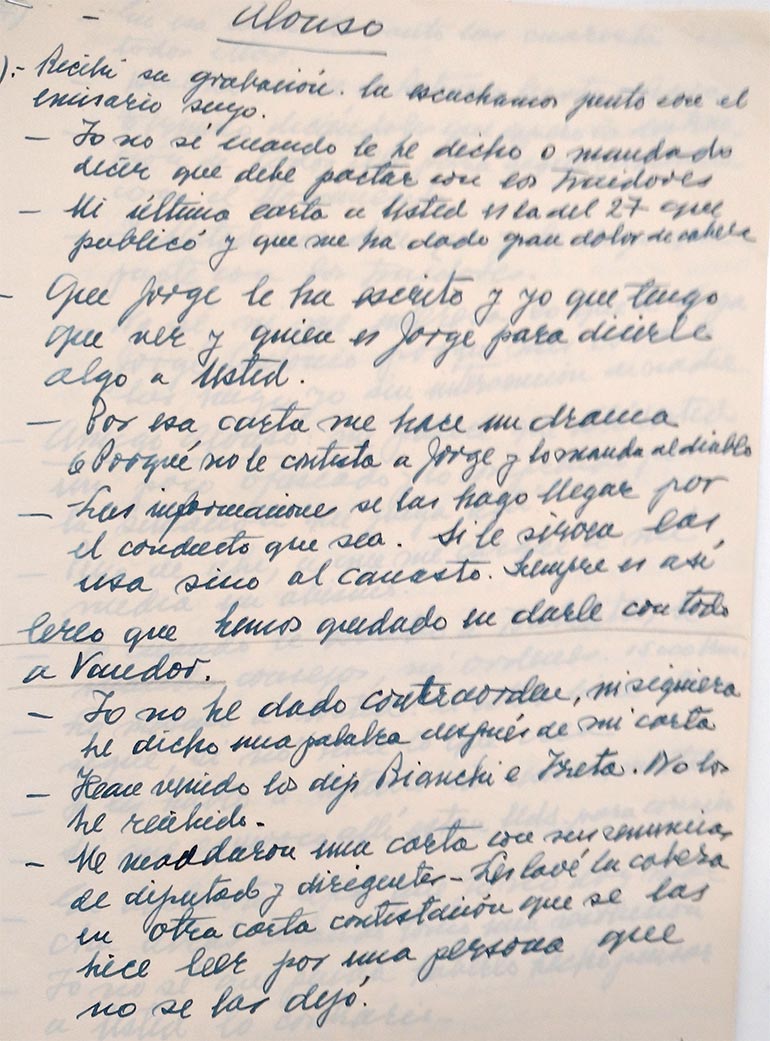 - Alonso
).- Recibí su grabación. la escuchamos junto con el
emisario suyo.
- Yo no sé cuando le he dicho o mandado
decir que debe pactar con los Traidores
- Mi última carta a Usted es la del 27 que
publicó y que me ha dado gran dolor de cabeza
- Que Jorge le ha escrito y yo que tengo
que ver y quien es Jorge para dicirle
algo a Usted.
- Por esa carta me hace un drama
Porqué no le contesta a Jorge y lo manda al diablo
- Las informaciones se las hago llegar por
el conducto que sea. Si le sirven las
usa sino al canasto. Siempre es así
Creo que hemos quedado en darle con todo
a Vandor.
- Yo no he dado contraorden, ni siquiera
he dicho una palabra después de mi carta
- Han venido los dip Bianchi e Izeta. No los
he recibido.-
- Me mandaron una carta con sus renuncias
de diputado y dirigentes - Les lavé la cabeza
en otra carta contestación que se las
hice leer por una persona que
no se las dejó.